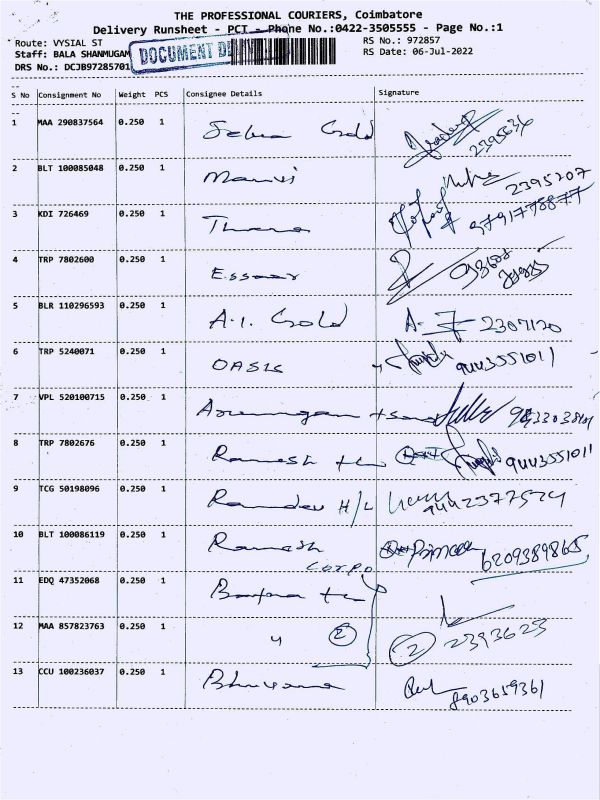 THE PROFESSIONAL COURIERS, Coimbatore
Delivery Runsheet - PCT - Phone No.:0422-3505555 - Page No.:1
Route: VYSIAL ST RS No.: 972857
Staff: BALA SHANMUGAM RS Date: 06-Jul-2022
DRS No.: DCJB97285701
DOCUMENT
S No Consignment No Weight PCS Consignee Details Signature
1 MAA 290837564 0.250 1 Gold 2395636
2 BLT 100085048 0.250 1 2395207
3 KDI 726469 0.250 1 9791778877
4 TRP 7802600 0.250 1 Essaar
5 BLR 110296593 0.250 1 A.I. Gold 2307120
6 TRP 5240071 0.250 1 OASIS 9443551011
7 VPL 520100715 0.250 1
8 TRP 7802676 0.250 1 Ramesh 9443551011
9 TCG 50198096 0.250 1 Ramdev H/L 9442377524
10 BLT 100086119 0.250 1 Ramesh 6209389865
Corpo
11 EDQ 47352068 0.250 1
12 MAA 857823763 0.250 1 ② ② 2393625
13 CCU 100236037 0.250 1 Bhuvana 8903659361